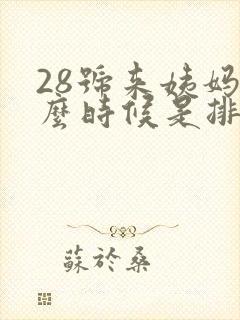 28號來姨媽
麼時候是排
蘇於桑